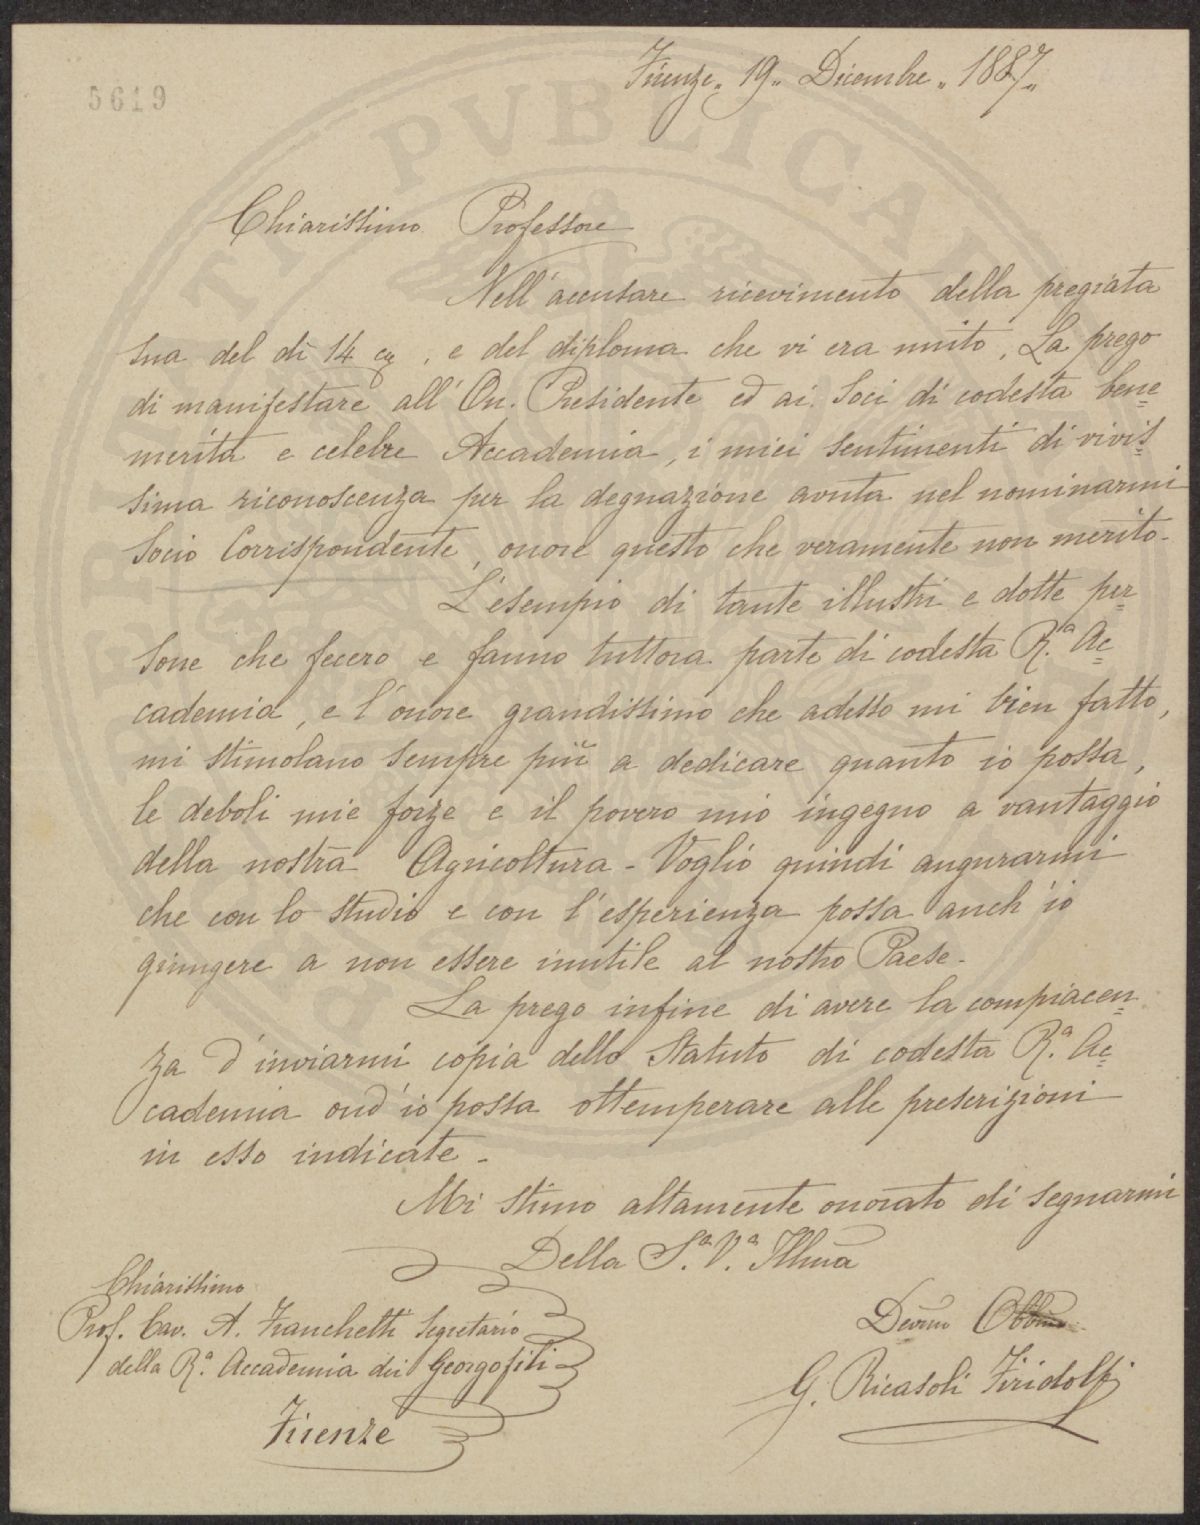 5619
Firenze,, 19,, Dicembre,, 1887,,
Chiarissimo Professore
Nell'accusare ricevimento della pregiata
sua del dì 14 , e del diploma che vi era unito, La prego
di manifestare all'On. Presidente ed ai Soci di codesta bene=
merita e celebre Accademia, i miei sentimenti di vivis=
sima riconoscenza per la degnazione avuta nel nominarmi
Socio Corrispondente, onore questo che veramente non merito-
L'esempio di tante illustri e dotte per=
sone che fecero e fanno tuttora parte di codesta R.ª Ac=
cademia, e l'onore grandissimo che adesso mi vien fatto,
mi stimolano sempre più a dedicare quanto io possa,
le deboli mie forze e il povero mio ingegno a vantaggio
della nostra Agricoltura - Voglio quindi augurarmi
che con lo studio e con l'esperienza possa anch'io
giungere a non essere inutile al nostro Paese-
La prego infine di avere la compiacen=
za d'inviarmi copia dello Statuto di codesta R.ª Ac=
cademia ond'io possa ottemperare alle prescrizioni
in esso indicate-
Mi stimo altamente onorato di segnarmi
Della S.ª V.ª Illma
Devmo Obbmo
G. Ricasoli Firidolfi
Chiarissimo
Prof. Cav. A. Franchetti Segretario
della R.ª Accademia dei Georgofili
Firenze